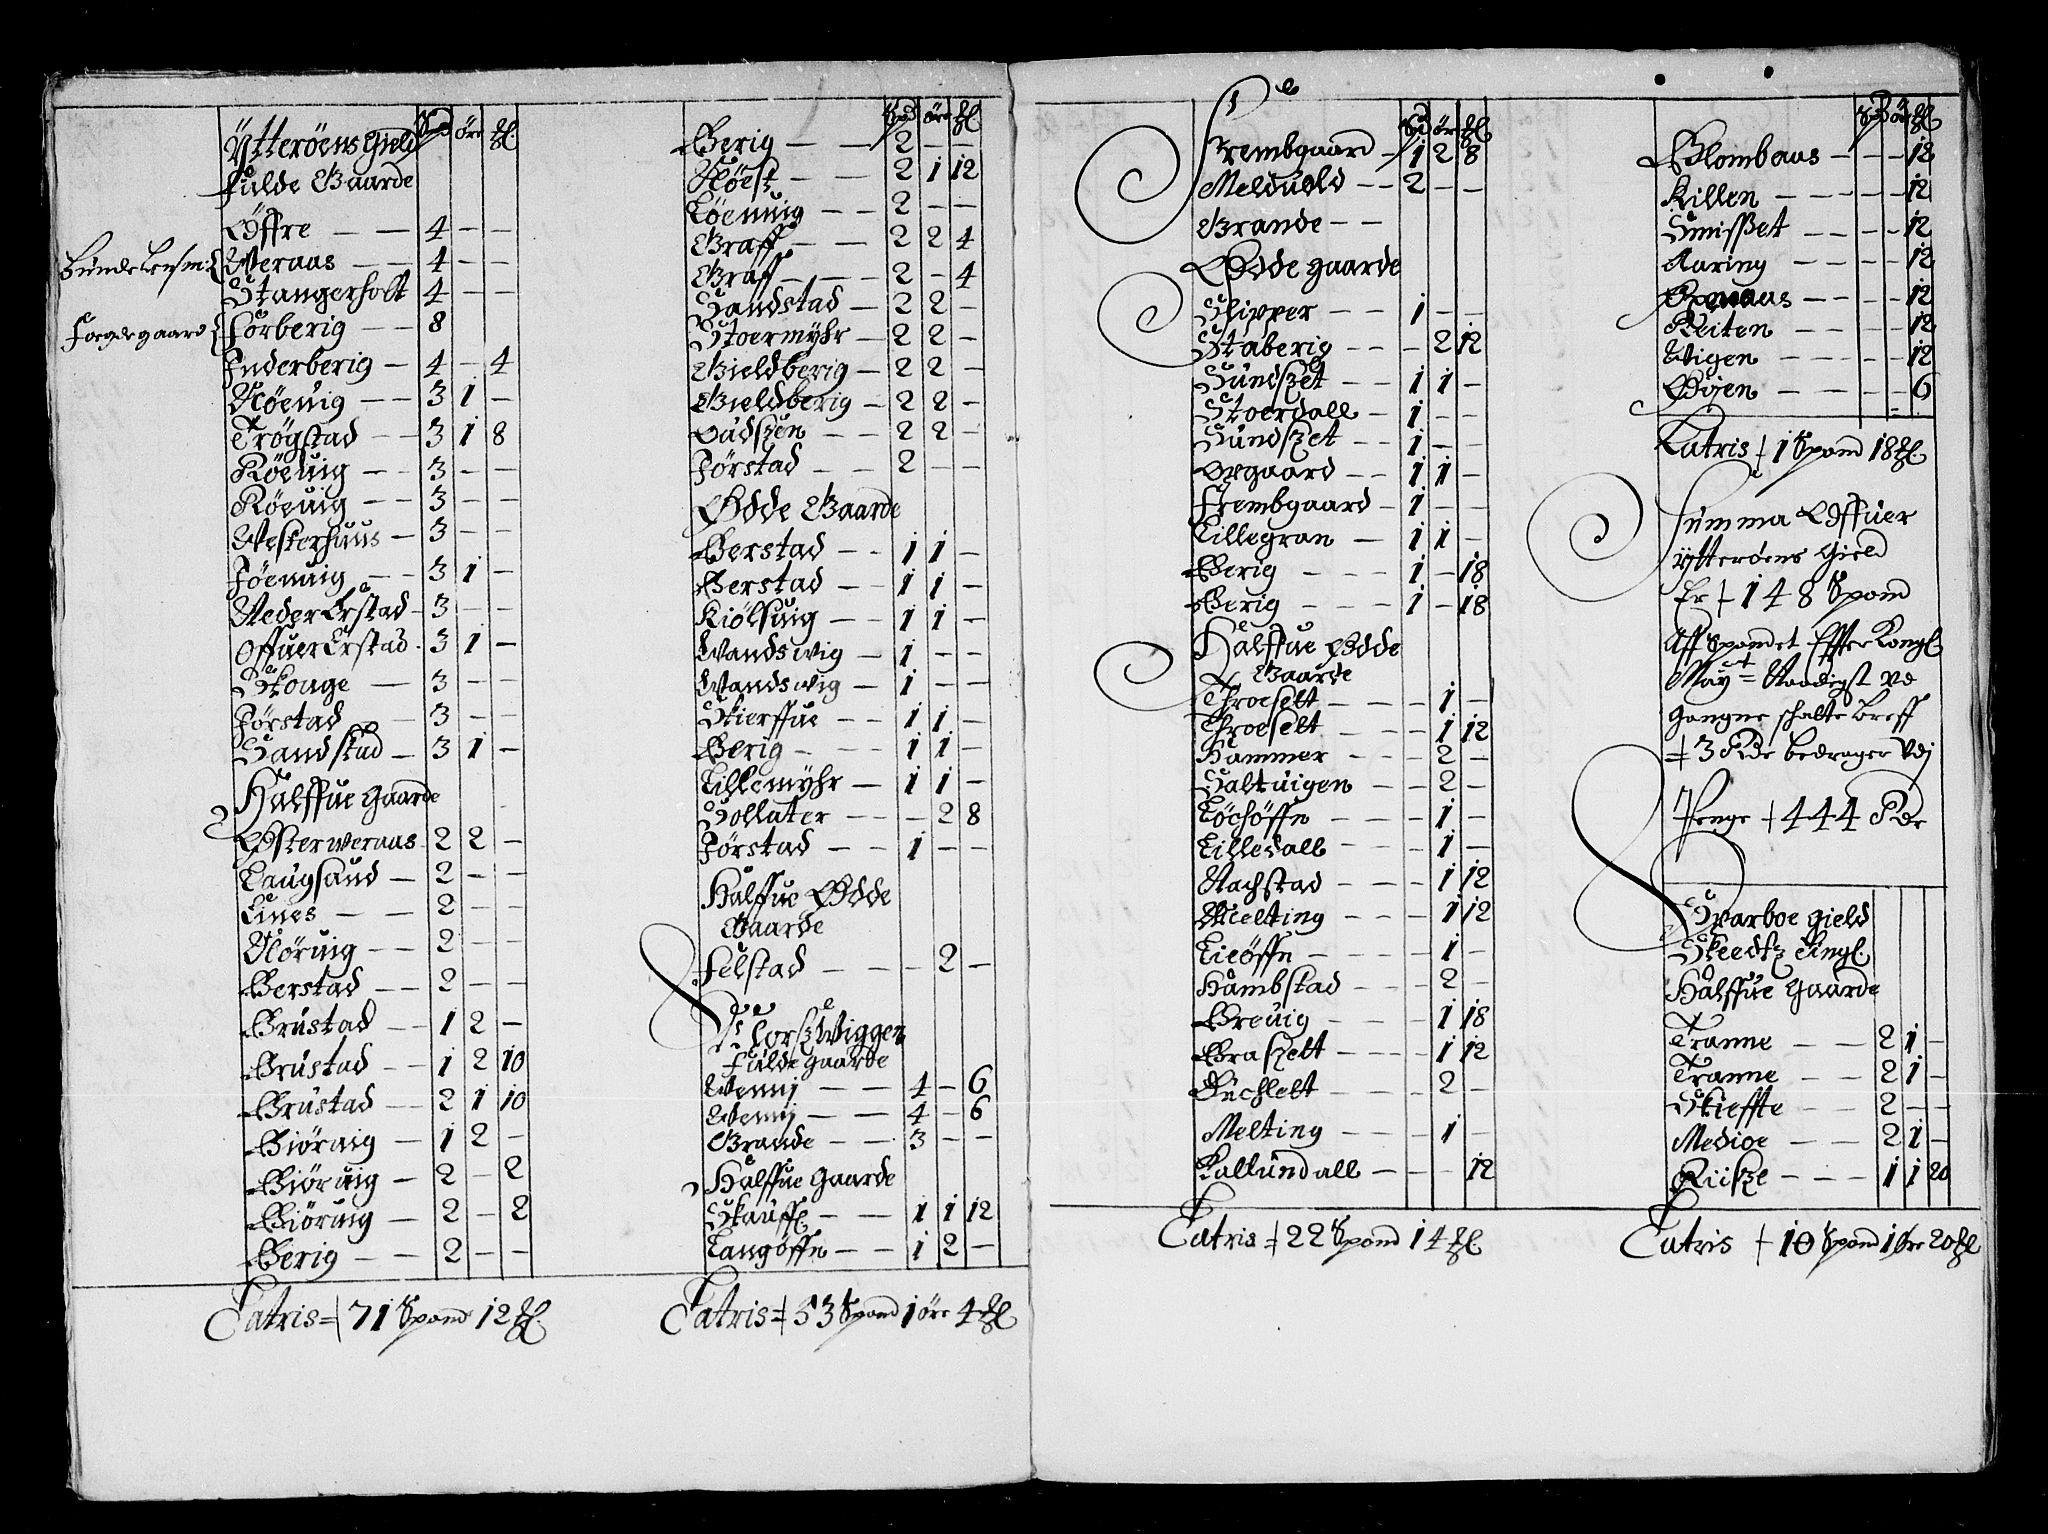 Ytterøens Gield Spd øre
Fulde Gaarde
Øffre — — 4 – –
Bunde Lensm: { Weraas — — 4 – –
Stangerholt 4 – –
Foegdegaard { Førberig — — 8
Inderberig — 4 – 4
Nøeuig — — 3 1 –
Trøgstad — — 3 1 8
Røeuig — — 3 – –
Røeuig — — 3 – –
Westerhuus — 3 – –
3 1 –
Neder Erstad – 3 – –
Offuer Erstad – 3 1 –
Skouge — 3 – –
Førstad — 3 – –
Sandstad — 3 1 –
Halffue Gaarde
Østerweraas – 2 2 –
Laugsand — 2 – –
Lines — — 2 – –
Nøruig — — 2 – –
Berstad — — 2 – –
Brustad — — 1 2 –
Brustad — — 1 2 10
Brustad — — 2 1 10
Biøruig — 1 2 –
Biøruig — 2 – 2
Biøruig — 2 – 2
Berig — — 2 – –
Latris = 71 Spond 12
Spd øre
Berig — — 2 – –
Røest — — 2 1 12
Løennig — — 2 – –
Graff — — 2 2 4
Graff — — 2 – 4
Sandstad — 2 2 –
Stoermyhr — 2 2 –
Gieldberig — 2 2 –
Gieldberig — 2 2 –
2 2 –
Førstad — — 2 – –
Ødde Gaarde
Berstad — — 1 1 –
Berstad — — 1 1 –
Kiølsuig — — 1 1 –
Wandswig — 1 – –
Wandswig — 1 – –
Skierffue — — 1 1 –
Berig — — 1 1 –
Lillemyhr — 1 1 –
Sollater — — – 2 8
Førstad — — 1 – –
Halffue Ødde
Gaarde
Felstad — — – 2 –
Fulde Gaarde
Wennj — — 4 – 6
Wennj — — 4 – 6
Grande — — 3 – –
Halffue Gaarde
— — 1 1 12
Langøffn — — 1 2 –
Latris = 53 Spond 1 øre 4
Spd ør
Frembgaard – 1 2 8
Melduold — — 2 – –
Grande — —
Ødde gaarde
Slipper — — 1 – –
Staberig — — – 2 12
Sundszet — — 1 1 –
Stoerdall — 1 – –
Sundszet — — 1 – –
Opgaard — — 1 1 –
Frembgaard — 1 – –
Lillegran — 1 1 –
Berig — — — 1 – 18
Berig — — — 1 – 18
Halffue Ødde
Gaarde
Throeselt — — – 1 –
Throeselt — — – 1 12
Hammer — — – 2 –
Saltuigen — — – 2 –
Løchøffn — — – 1 –
Lilledall — — – 1 –
Nachstad — — – 1 12
Melting — — – 1 12
Lieøffn — — – 1 –
Hambstad — — – 2 –
Breuig — — – 1 18
Braszelt — — – 1 12
Buchlelt — — – 2 –
Melting — — – 1 –
Kallundall — — – – 12
Latris = 22 Spond 14
Spd ør
Blombaas — — – – 12
Killen — — – – 12
Smisszet — — – – 12
Aaring — — – – 12
– – 12
Reiten — — – – 12
Wigen — — – – 12
Øyen — — – – 6
Latris + 1 Spond 18
Summa Offuer
Ytterøens Gield
Er + 148 Spond
Aff Spondet Effter Kongl
May:t Naadigst vd
gangne schatte breff
= 3 Rde bedrager vdj
Penge + 444 Rde
Sparboe gield
Halffue Gaarde
Tranne — — 2 1 –
Tranne — — 2 1 –
Skieffte — — 2 – –
Medioe — — 2 1 –
Riisze — — 1 1 20
Latris + 10 Spond 1 øre 20